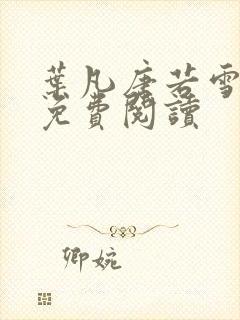 葉凡唐若雪
免費閱讀
卿婉